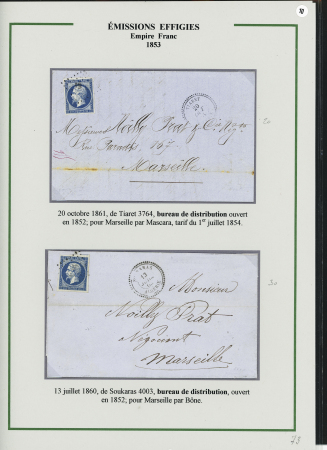 10
ÉMISSIONS EFFIGIES
Empire Franc
1853
TIARET
20
Messieurs Noilly Prat & Cie Negts
Rue Paradis 167
Marseille
20
20 octobre 1861, de Tiaret 3764, bureau de distribution ouvert
en 1852; pour Marseille par Mascara, tarif du 1er juillet 1854.
13
Monsieur
30
Noilly Prat
Négociant
Marseille
13 juillet 1860, de Soukaras 4003, bureau de distribution, ouvert
en 1852; pour Marseille par Bône.
73